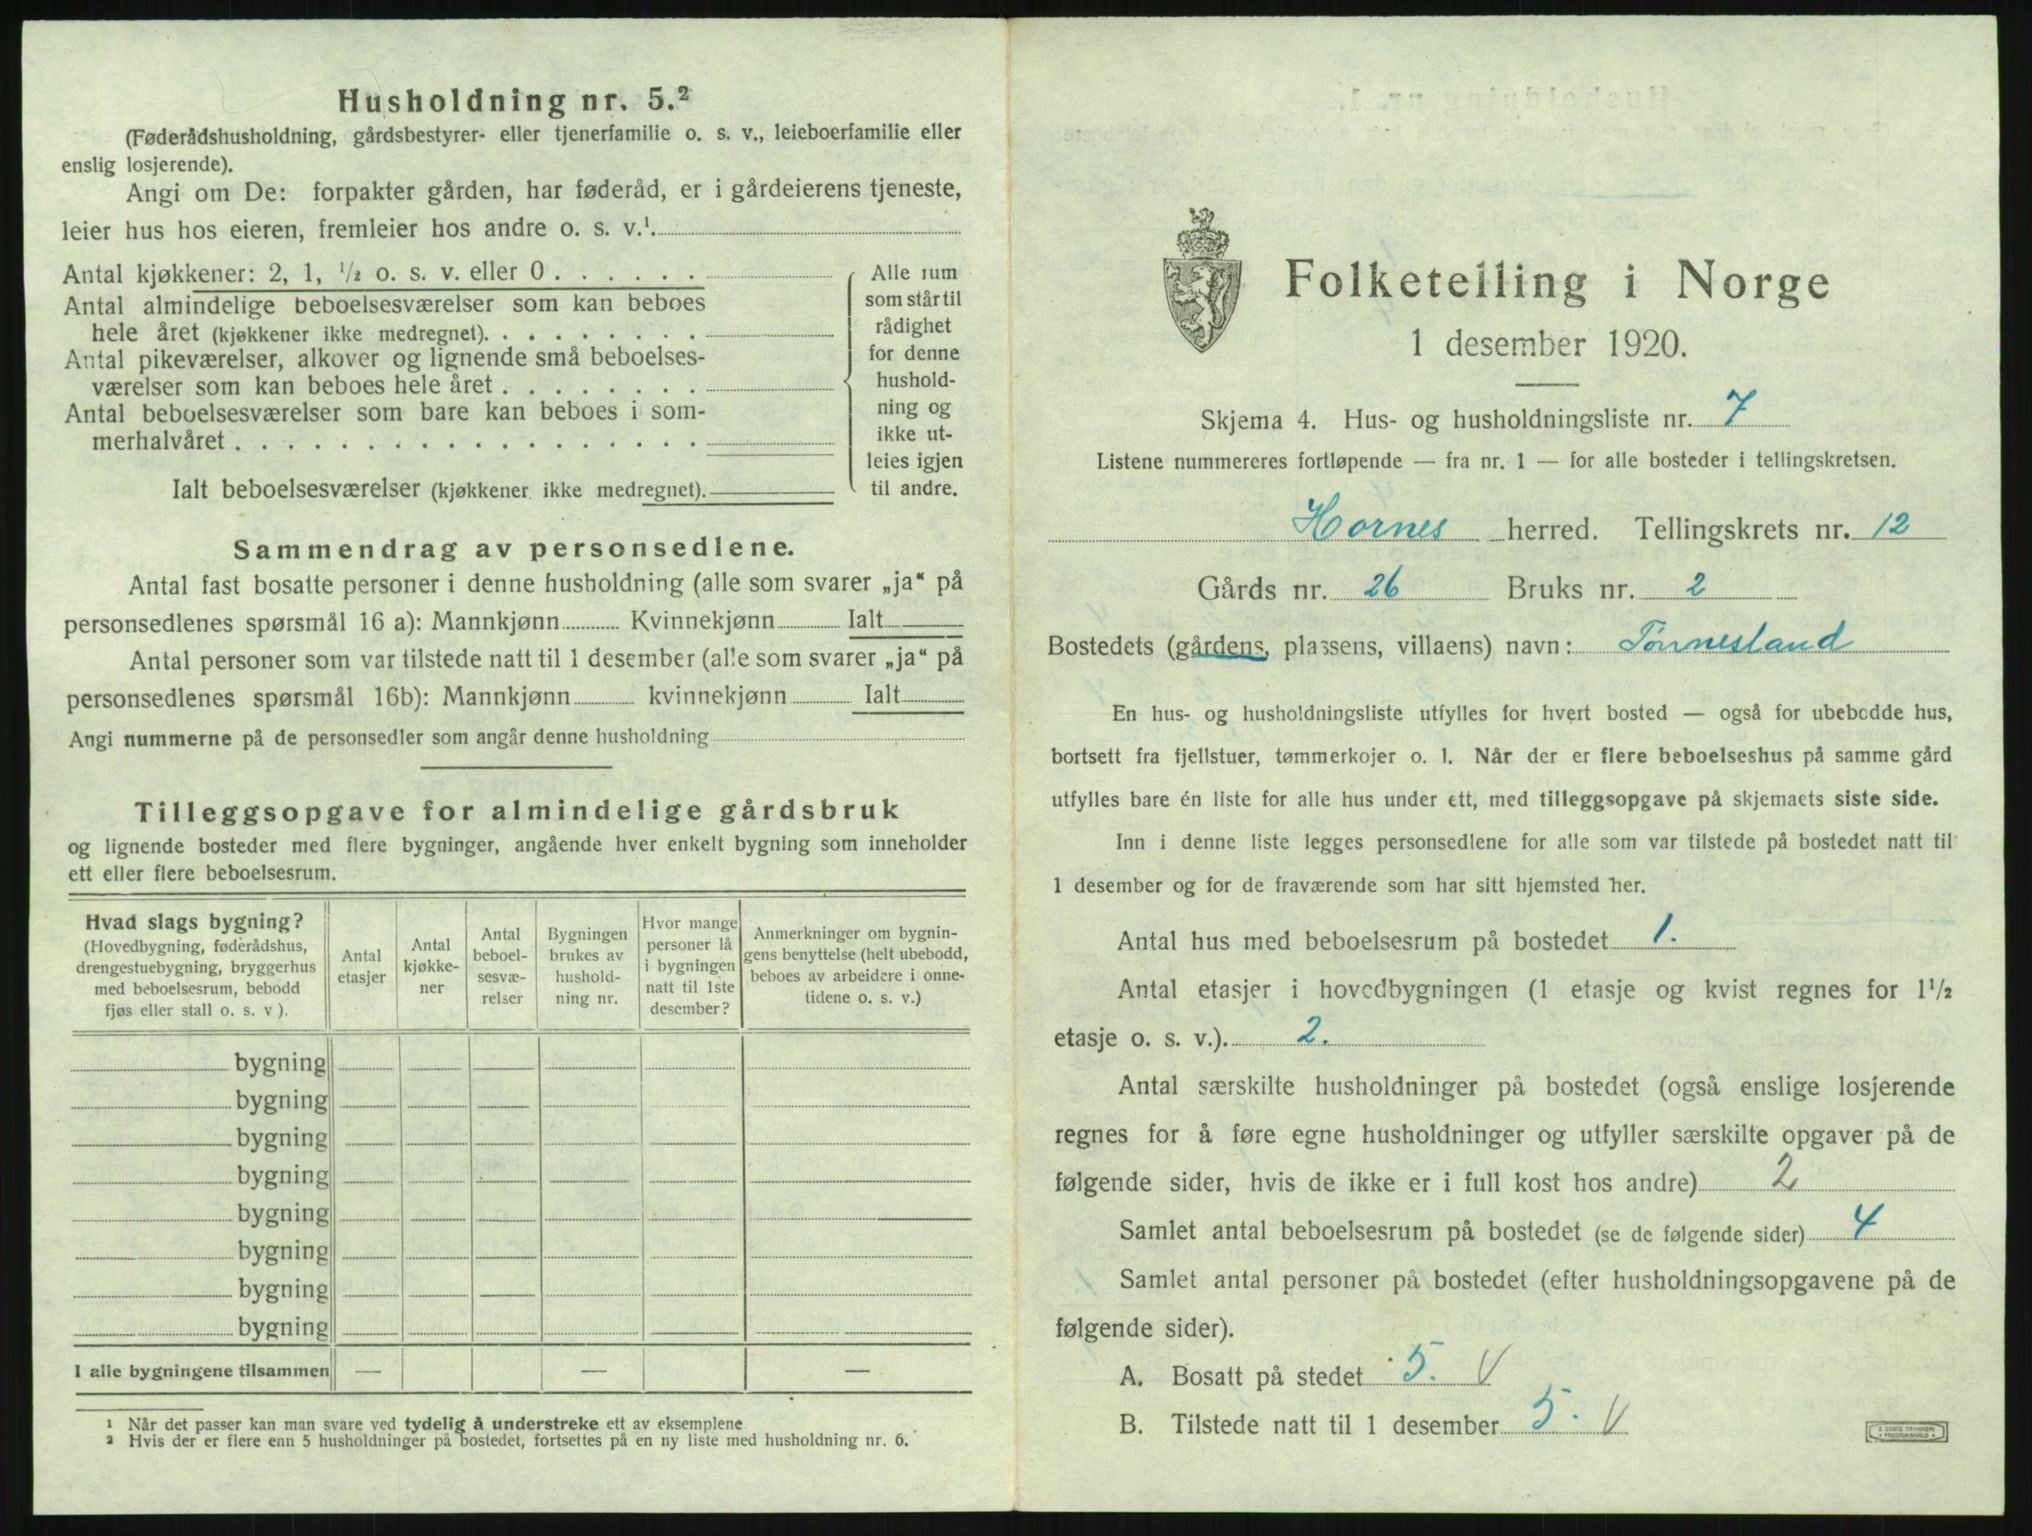 Husholdning nr. 5.²
(Føderådshusholdning, gårdsbestyrer- eller tjenerfamilie o. s. v., leieboerfamilie eller
enslig losjerende).
Angi om De: forpakter gården, har føderåd, er i gårdeierens tjeneste,
leier hus hos eieren, fremleier hos andre o. s. v.¹.
Antal kjøkkener: 2, 1, ½ o. s. v. eller 0 . . . . . .
Antal almindelige beboelsesværelser som kan beboes
hele året (kjøkkener ikke medregnet). . . . . . . . .
Antal pikeværelser, alkover og lignende små beboelses-
værelser som kan beboes hele året . . . . . . . .
Antal beboelsesværelser som bare kan beboes i som-
merhalvåret . . . . . . . . . . . . . . . . . .
Ialt beboelsesværelser (kjøkkener ikke medregnet).
Alle rum
som står til
rådighet
for denne
hushold-
ning og
ikke ut-
leies igjen
til andre.
Sammendrag av personsedlene.
Antal fast bosatte personer i denne husholdning (alle som svarer „ja“ på
personsedlenes spørsmål 16 a): Mannkjønn Kvinnekjønn Ialt
Antal personer som var tilstede natt til 1 desember (alle som svarer „ja“ på
personsedlenes spørsmål 16b): Mannkjønn kvinnekjønn Ialt
Angi nummerne på de personsedler som angår denne husholdning
Tilleggsopgave for almindelige gårdsbruk
og lignende bosteder med flere bygninger, angående hver enkelt bygning som inneholder
ett eller flere beboelsesrum.
Hvad slags bygning?
(Hovedbygning, føderådshus,
drengestuebygning, bryggerhus
med beboelsesrum, bebodd
fjøs eller stall o. s. v ).
Antal
etasjer
Antal
kjøkke-
ner
Antal
beboel-
sesvæ-
relser
Bygningen
brukes av
hushold-
ning nr.
Hvor mange
personer lå
i bygningen
natt til 1ste
desember?
Anmerkninger om bygnin-
gens benyttelse (helt ubebodd,
beboes av arbeidere i onne-
tidene o. s. v.)
bygning
bygning
bygning
bygning
bygning
bygning
bygning
bygning
I alle bygningene tilsammen — — —
¹ Når det passer kan man svare ved tydelig å understreke ett av eksemplene
² Hvis der er flere enn 5 husholdninger på bostedet, fortsettes på en ny liste med husholdning nr. 6.
Folketelling i Norge
1 desember 1920.
Skjema 4. Hus- og husholdningsliste nr. 7
Listene nummereres fortløpende — fra nr. 1 — for alle bosteder i tellingskretsen.
Hornes herred. Tellingskrets nr. 12
Gårds nr. 26 Bruks nr. 2
Bostedets (gårdens, plassens, villaens) navn: Tønnesland
En hus- og husholdningsliste utfylles for hvert bosted — også for ubebodde hus,
bortsett fra fjellstuer, tømmerkojer o. l. Når der er flere beboelseshus på samme gård
utfylles bare én liste for alle hus under ett, med tilleggsopgave på skjemaets siste side.
Inn i denne liste legges personsedlene for alle som var tilstede på bostedet natt til
1 desember og for de fraværende som har sitt hjemsted her.
Antal hus med beboelsesrum på bostedet 1.
Antal etasjer i hovedbygningen (1 etasje og kvist regnes for 1½
etasje o. s. v.). 2.
Antal særskilte husholdninger på bostedet (også enslige losjerende
regnes for å føre egne husholdninger og utfyller særskilte opgaver på de
følgende sider, hvis de ikke er i full kost hos andre) 2
Samlet antal beboelsesrum på bostedet (se de følgende sider) 4
Samlet antal personer på bostedet (efter husholdningsopgavene på de
følgende sider).
A. Bosatt på stedet 5. V
B. Tilstede natt til 1 desember 5. V